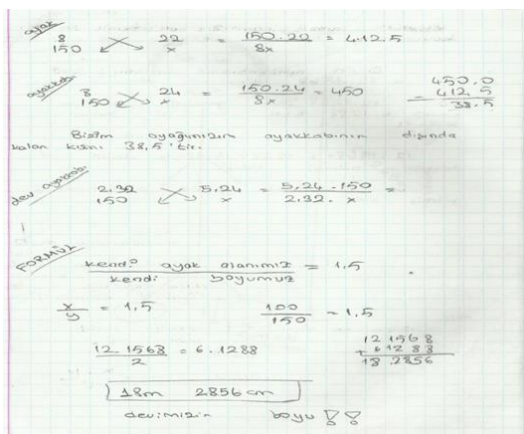 ayak
8 22 = 150.22 = 412.5
150 x 8x
ayakkabı
8 24 = 150.24 = 450
150 x 8x
450.0
- 412.5
38.5
Bizim ayağımızın ayakkabının dışında
kalan kısmı 38,5'tir.
dev ayakkabı
2.32 5.24 = 5.24.150 =
150 x 2.32.x
FORMÜL
kendi ayak alanımız = 1,5
kendi boyumuz
x = 1,5 100 = 1,5
y 150
12.1568 = 6.1288
2
12 1568
+ 6 1288
18.2856
18m 2856 cm
devimizin boyu !!